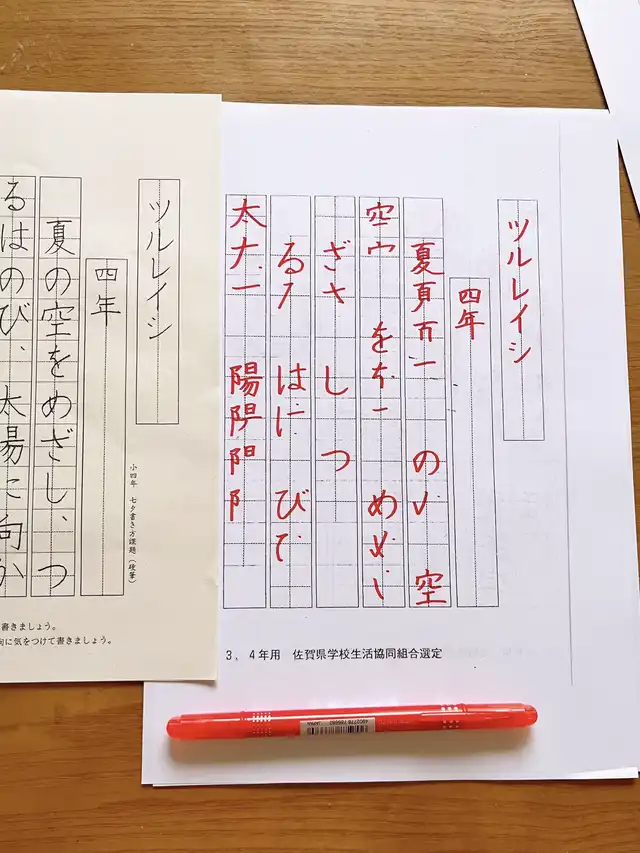 ツルレイシ
四年
夏頁百一 の 空
空 を め
ざ し つ
る は び
太ナ一 陽
3、4年用 佐賀県学校生活協同組合選定
ツルレイシ
小四年 七夕書き方課題(硬筆)
四年
夏の空をめざし、つ
るはのび、太陽に向か
書きましょう。
向に気をつけて書きましょう。
JAPAN